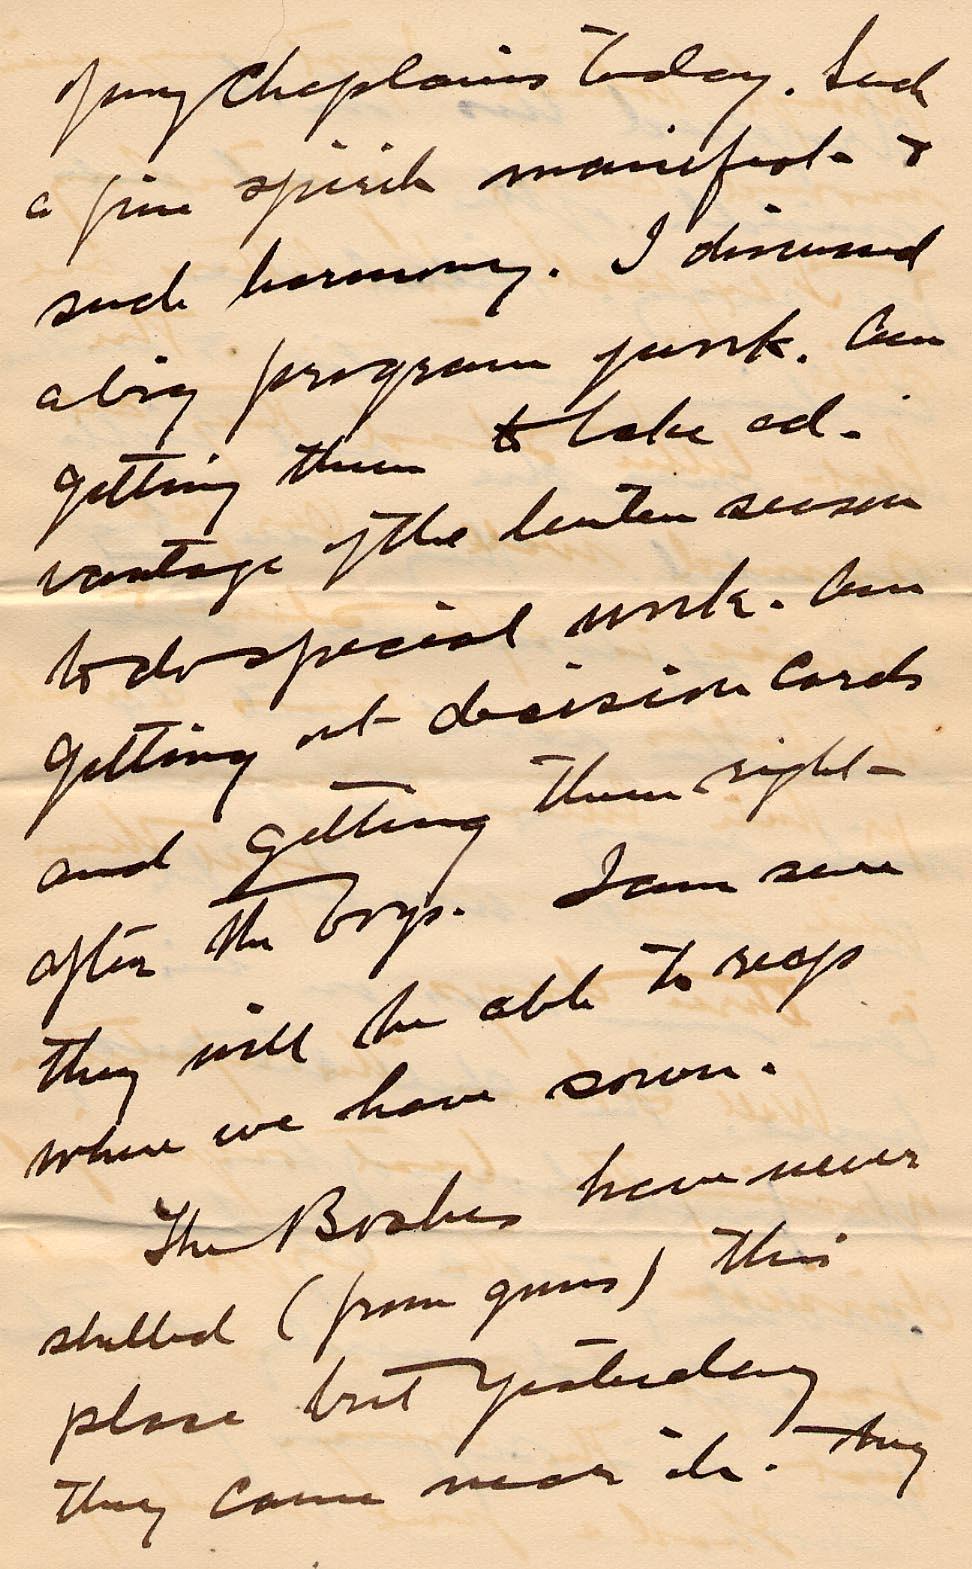 of my Chaplains today. Such
a fine spirit manifest &
such harmony. I discussed
a big program of work. Am
getting them to take ad-
vantage of the lenten season
to do special work. Am
getting out decision cards
and getting them right
after the boys. I am sure
they will be able to reap
where we have sown.
The Boshes have never
shelled (from guns) this
place but yesterday
they came near it. They